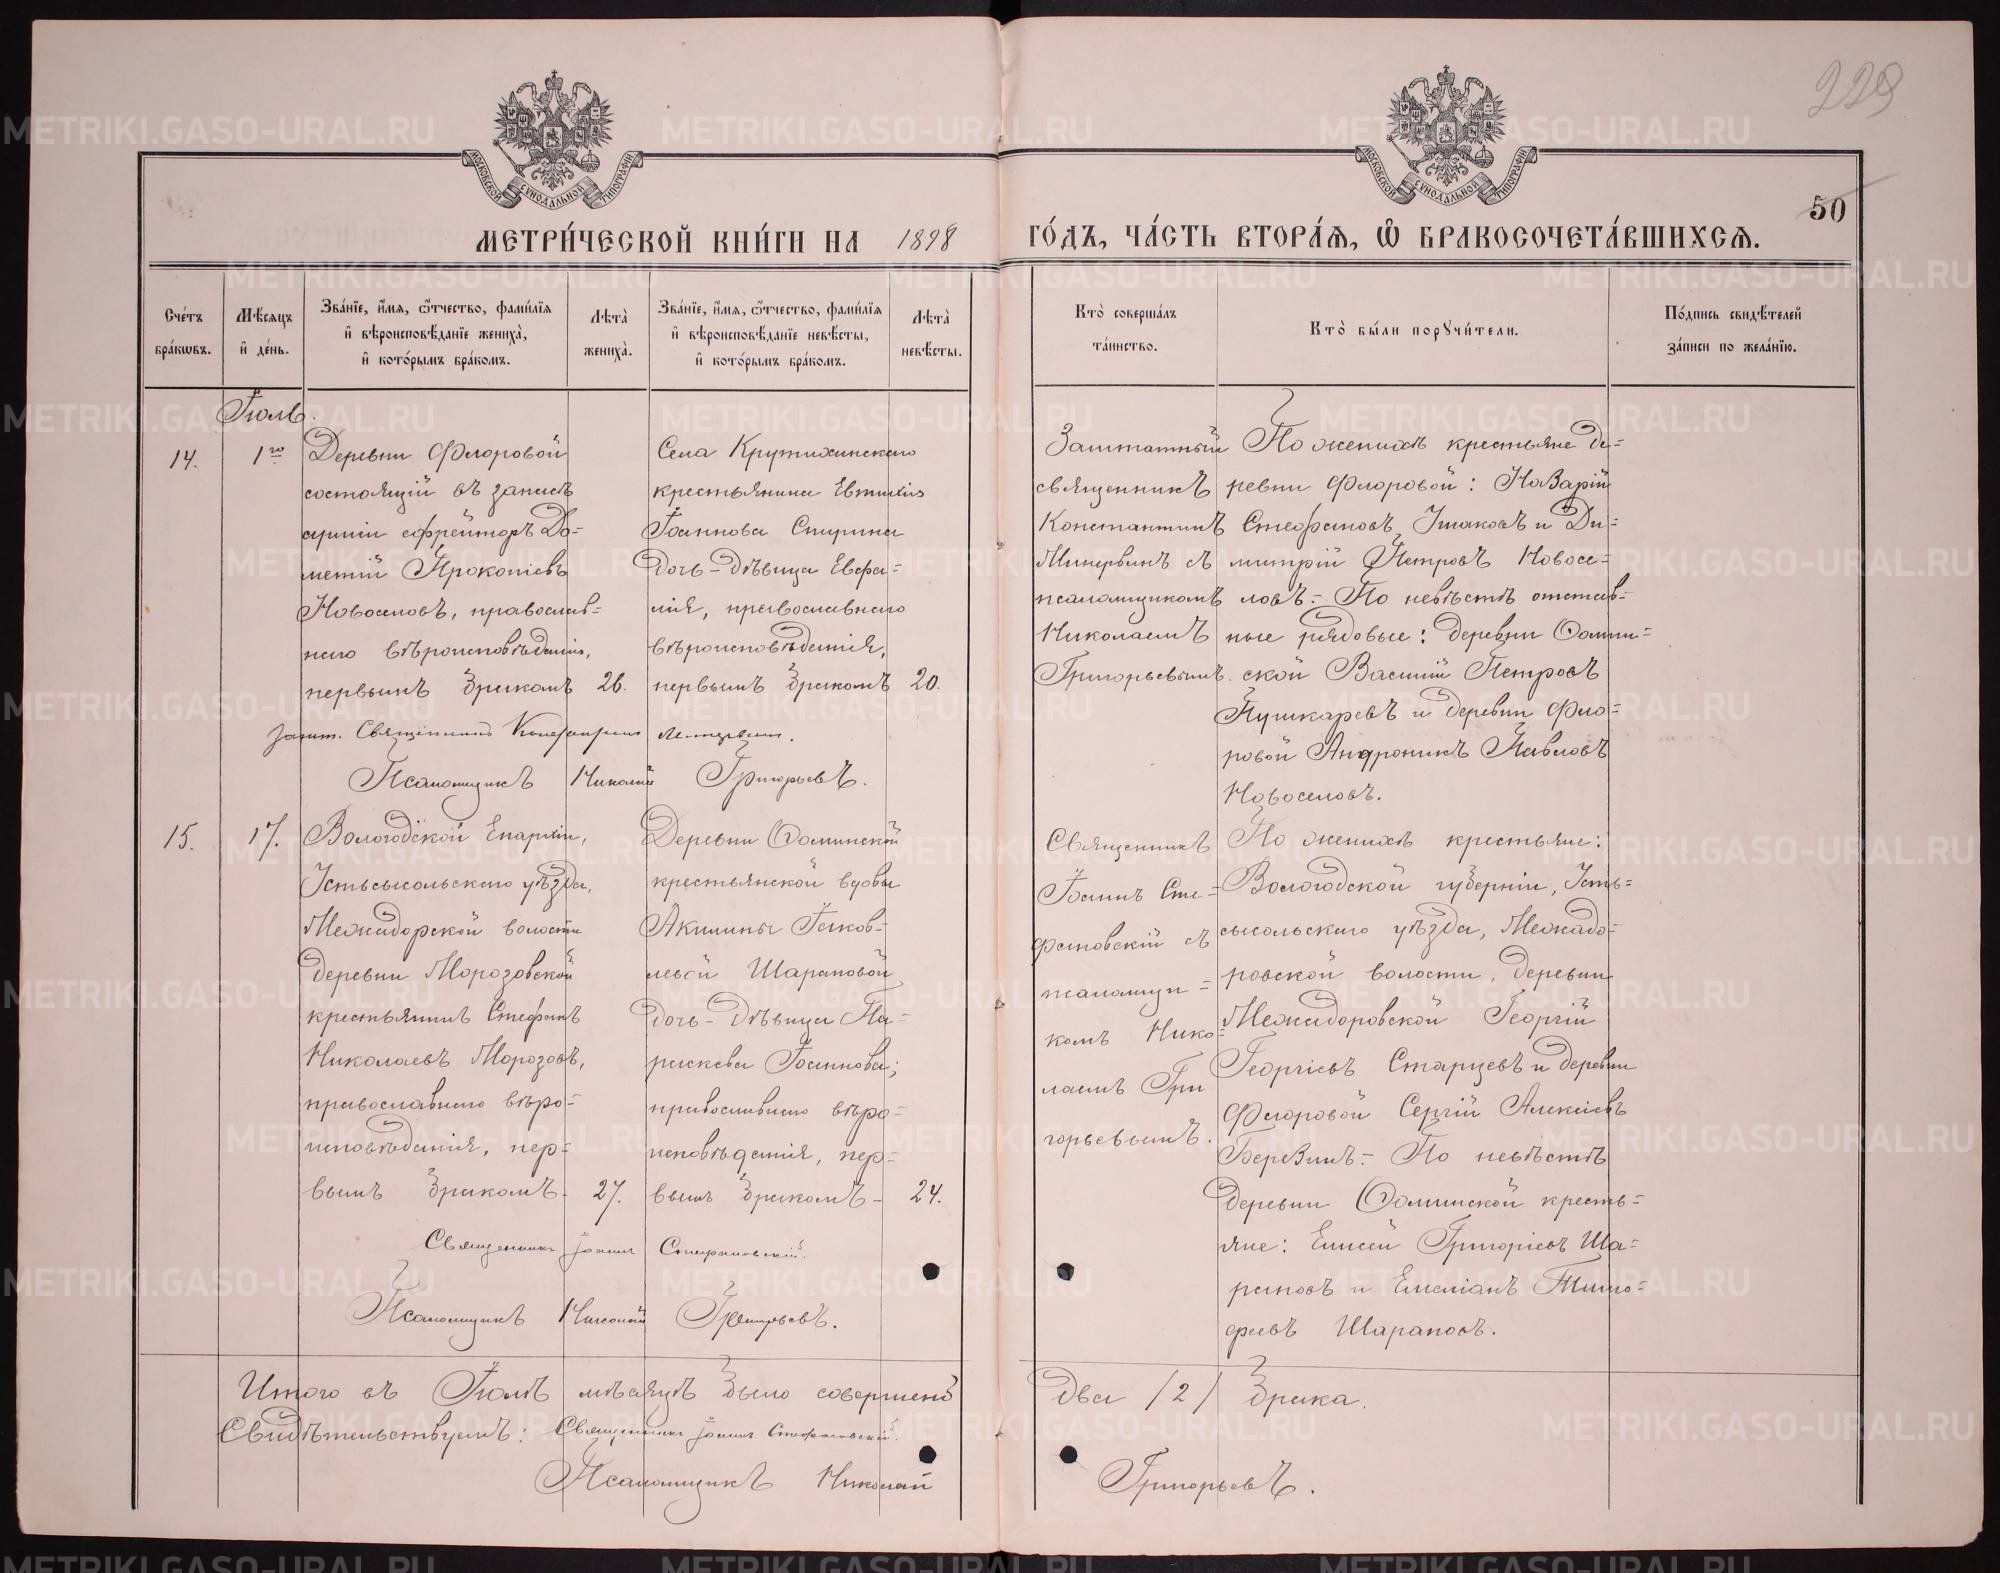 229
50
МОСКОВСКОЙ СѴНОДАЛЬНОЙ ТИПОГРАФІИ
МОСКОВСКОЙ СѴНОДАЛЬНОЙ ТИПОГРАФІИ
МЕТРИ́ЧЕСКОЙ КНИ́ГИ НА 1898 ГО́ДЪ, ЧА́СТЬ ВТОРА́Я, Ѽ БРАКОСОЧЕТА́ВШИХСЯ.
Сче́тъ
бра́ковъ.
Мѣ́сяцъ
и҆ де́нь.
Зва́нїе, и҆́мя, ѻ҆́тчество, фами́лїя
и҆ вѣроисповѣ́данїе жениха̀,
и҆ кото́рымъ бра́комъ.
Лѣта̀
жениха̀.
Зва́нїе, и҆́мя, ѻ҆́тчество, фами́лїя
и҆ вѣроисповѣ́данїе невѣ́сты,
и҆ кото́рымъ бра́комъ.
Лѣта̀
невѣ́сты.
Кто̀ соверша́лъ
та́инство.
Кто̀ бы́ли порꙋчи́тели.
По́дпись свидѣ́телей
за́писи по жела́нїю.
Іюль.
14.
1го
Деревни Флоровой
состоящій въ запасѣ
арміи ефрейторъ До=
метій Прокопіевъ
Новоселовъ, православ=
наго вѣроисповѣданія,
первымъ бракомъ
26.
Села Крутихинскаго
крестьянина Евтихія
Іоаннова Спирина
дочь-дѣвица Евфа=
лія, православнаго
вѣроисповѣданія,
первымъ бракомъ
20.
Заштатный
священникъ
Константинъ
Минервинъ съ
псаломщикомъ
Николаемъ
Григорьевымъ.
По женихѣ крестьяне де=
ревни Флоровой: Назарій
Стефановъ Ушаковъ и Ди=
митрій Петровъ Новосе=
ловъ.- По невѣстѣ отстав=
ные рядовые: деревни Фомин=
ской Василій Петровъ
Пушкаревъ и деревни Фло=
ровой Андроникъ Павловъ
Новоселовъ.
Зашт. Священникъ Константинъ Минервинъ.
Псаломщикъ Николай Григорьевъ.
15.
17.
Вологодской Епархіи,
Устьсысольскаго уѣзда,
Межадорской волости
деревни Морозовской
крестьянинъ Стефанъ
Николаевъ Морозовъ,
православнаго вѣро=
исповѣданія, пер=
вымъ бракомъ-
27.
Деревни Фоминской
крестьянской вдовы
Акилины Іаков=
левой Шараповой
дочь-дѣвица Па=
раскева Іоаннова;
православнаго вѣро=
исповѣданія, пер=
вымъ бракомъ-
24.
Священникъ
Іоаннъ Сте=
фановскій съ
псаломщи=
комъ Нико=
лаемъ Гри
горьевымъ.
По женихѣ крестьяне:
Вологодской губерніи, Усть=
сысольскаго уѣзда, Межадо=
ровской волости, деревни
Межадоровской Георгій
Георгіевъ Старцевъ и деревни
Флоровой Сергій Алексіевъ
Березинъ.- По невѣстѣ
деревни Фоминской кресть=
яне: Елисей Григоріевъ Ша=
раповъ и Емеліанъ Тимо=
феевъ Шараповъ.
Священникъ Іоаннъ Стефановскій.
Псаломщикъ Николай Григорьевъ.
Итого въ Іюлѣ мѣсяцѣ было совершено два /2/ брака.
Свидѣтельствуемъ: Священникъ Іоаннъ Стефановскій.
Псаломщикъ Николай Григорьевъ.